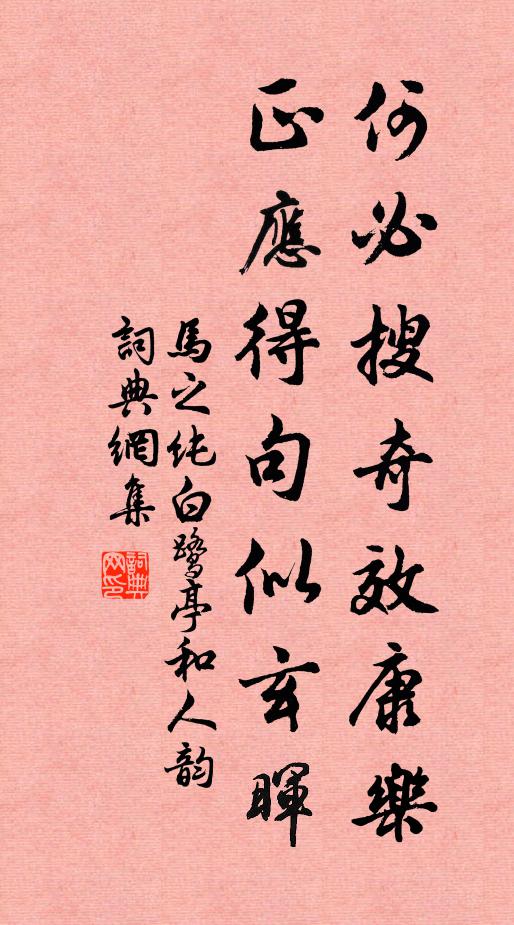 何必搜奇效康樂
正應得句似玄暉
馬之純白鷺亭和人韵
詞典網集
詞典
网印